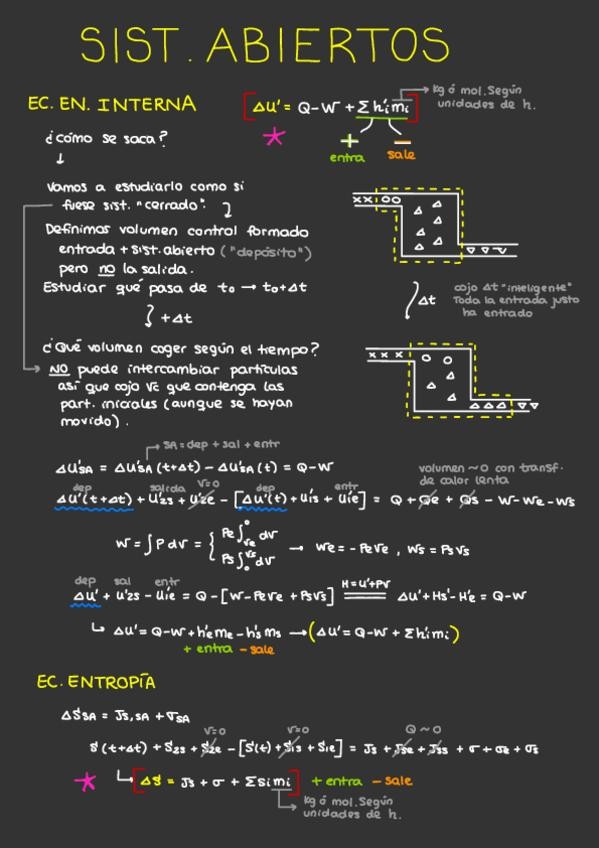 SIST. ABIERTOS
EC. EN. INTERNA
[ΔU' = Q-W + Σh'imi]
kg ó mol. Según
unidades de h.
* + entra - sale
¿Cómo se saca?
↓
Vamos a estudiarlo como si
fuese sist. "cerrado".
Definimos volumen control formado
entrada + sist. abierto ("depósito")
pero no la salida.
Estudiar qué pasa de to → to+Δt
+Δt
Δt
cojo Δt "inteligente"
Toda la entrada justo
ha entrado
¿Qué volumen coger según el tiempo?
NO puede intercambiar partículas
así que cojo VC que contenga las
part. iniciales (aunque se hayan
movido).
SA = dep + sal + entr
ΔU'SA = ΔU'SA (t+Δt) - ΔU'SA (t) = Q-W
volumen ~0 con transf.
de calor lenta
dep salida V=0 dep entr
ΔU'(t+Δt) + U'2s + U'2e - [ΔU'(t) + U'1s + U'1e] = Q + Qe + Qs - W - We - Ws
W = ∫P dV = { Pe∫ve0 dV → We = -PeVe , Ws = PsVs
Ps∫0Vs dV
dep sal entr
ΔU' + U'2s - U'1e = Q - [W - PeVe + PsVs] H=U'+PV ΔU' + Hs' - H'e = Q-W
↳ ΔU' = Q-W + h'eme - h's ms → (ΔU' = Q-W + Σh'imi)
+ entra - sale
EC. ENTROPÍA
ΔS'SA = Js,SA + σSA
V=0 V=0 Q~0
S'(t+Δt) + S'2s + S'2e - [S'(t) + S'1s + S'1e] = Js + Jse + Jss + σ + σe + σs
* ↳ [ΔS' = Js + σ + Σsi mi] + entra - sale
kg ó mol. Según
unidades de h.